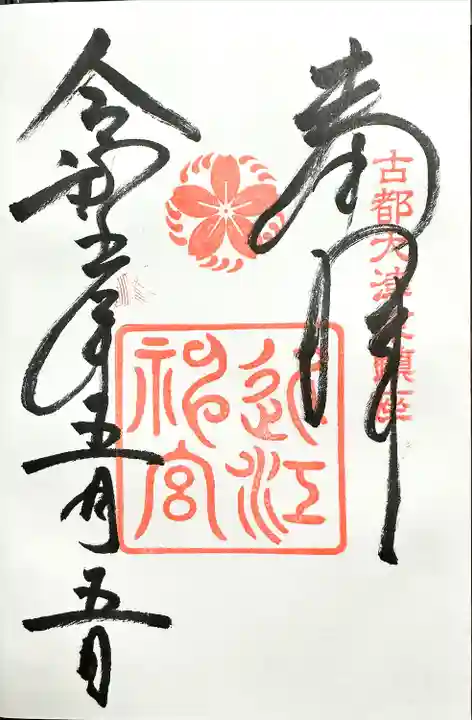 奉拝
古都大津京鎮座
近江
神宮
令和 年五月五日